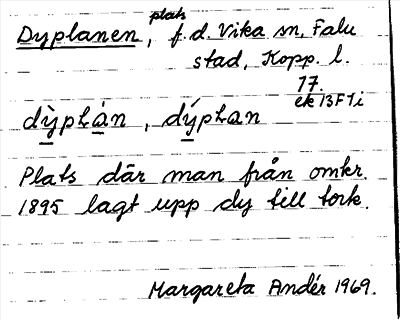 Dyplanen, plats f.d. Vika sn, Falu
stad, Kopp. l.
17.
ek 13F7i
dỳpLàn, dýpLan
Plats där man från omkr.
1895 lagt upp dy till tork.
Margareta Andér 1969.